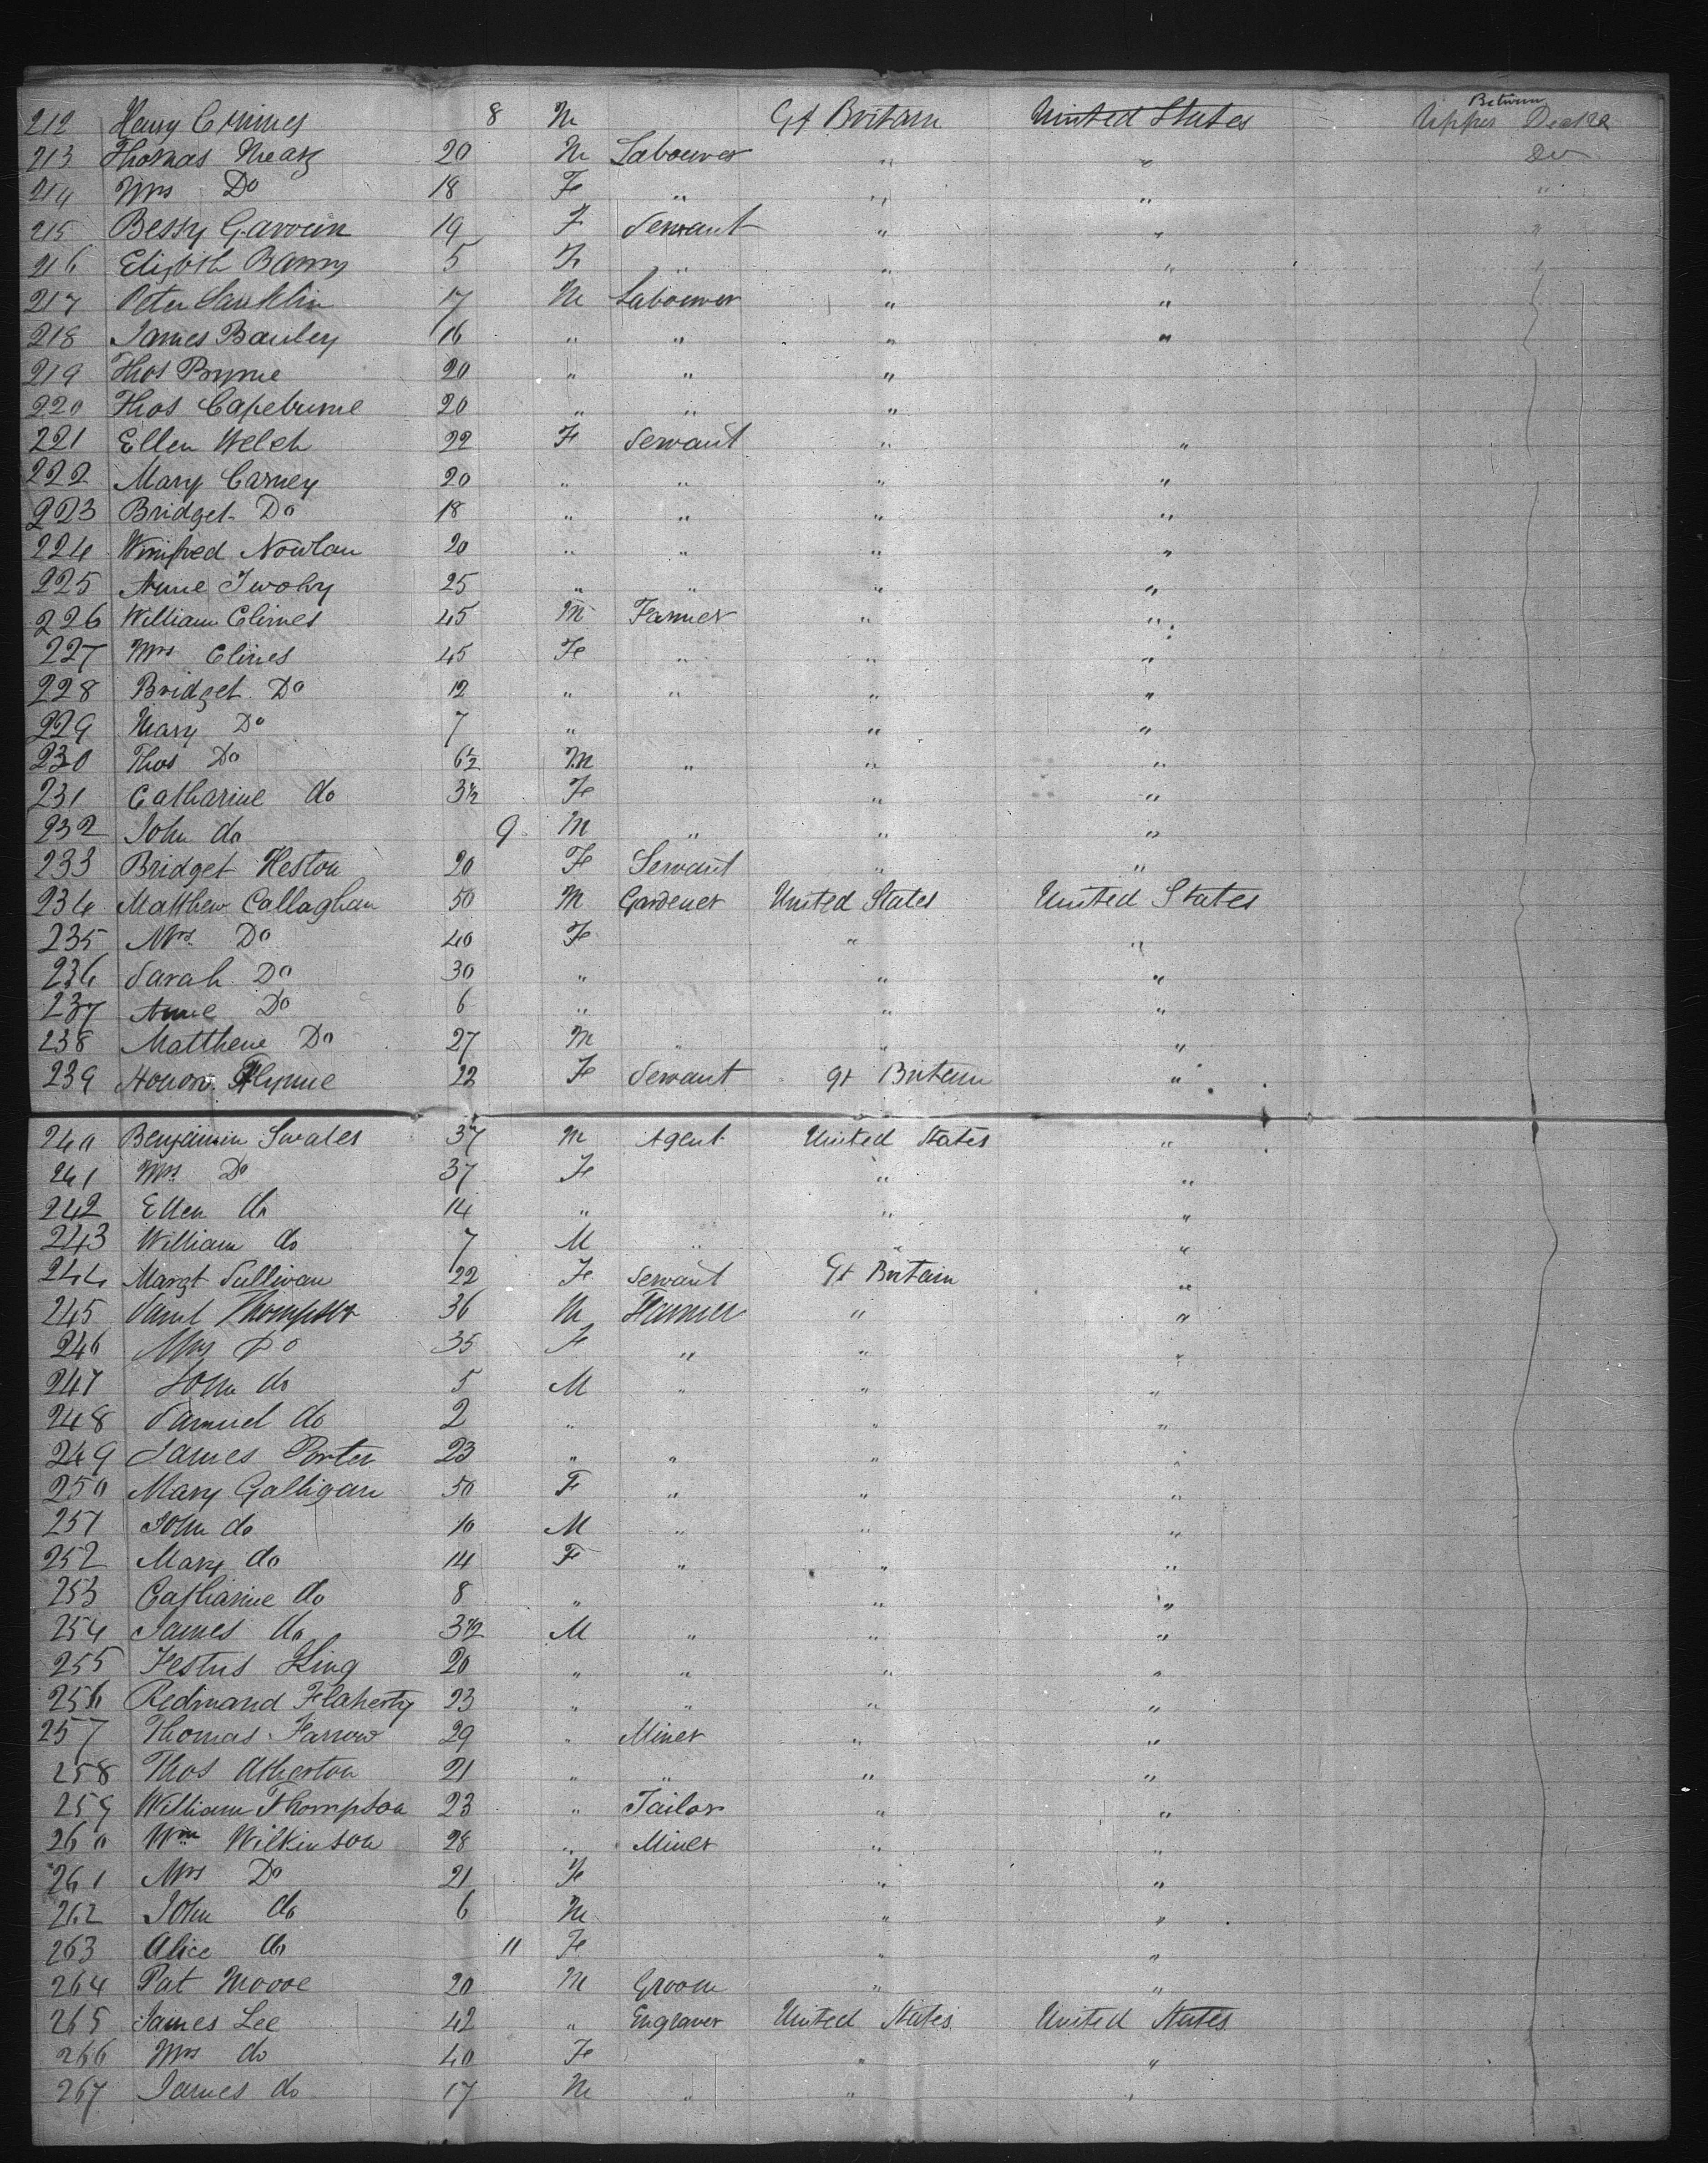 212 Henry Crimes 8 M Gt Britain United States Between Upper Decks
213 Thomas Mearz 20 M Labourer " " Do
214 Mrs Do 18 Fe " " " "
215 Bessy Garvein 19 F Servant " " "
216 Elizbth Barry 5 Fe " " " "
217 Peter Lauklin 17 M Labourer " "
218 James Bauley 16 " " " "
219 Thos Byrne 20 " " "
220 Thos Capeburne 20 " " "
221 Ellen Welch 22 F Servant " "
222 Mary Carney 20 " " " "
223 Bridget Do 18 " " " "
224 Winifred Nowlan 20 " " " "
225 Anne Twohy 25 " " " "
226 William Clines 45 M Farmer " "
227 Mrs Clines 45 Fe " " "
228 Bridget Do 12 " " " "
229 Mary Do 7 " " "
230 Thos Do 6½ M " " "
231 Catharine do 3½ Fe " "
232 John do 9 M " " "
233 Bridget Heston 20 Fe Servant " "
234 Matthew Callaghan 50 M Gardener United States United States
235 Mrs Do 40 Fe " "
236 Sarah Do 30 " " "
237 Anne Do 6 " " "
238 Matthew Do 27 M " " "
239 Honor Flynne 22 Fe Servant Gt Britain "
240 Benjamin Swales 37 M Agent United States "
241 Mrs Do 37 Fe " "
242 Ellen do 14 " " "
243 William do 7 M " " "
244 Margt Sullivan 22 Fe Servant Gt Britain "
245 Saml Thompson 36 M Farmer " "
246 Mrs Do 35 Fe " " "
247 John do 5 M " " "
248 Samuel do 2 " " "
249 James Porter 23 " " " "
250 Mary Galligan 50 F " " "
251 John do 10 M " " "
252 Mary do 14 F " " "
253 Catharine do 8 " " "
254 James do 3½ M " " "
255 Festus King 20 " " " "
256 Redmand Flaherty 23 " " " "
257 Thomas Farrow 29 " Miner " "
258 Thos Atherton 21 " " " "
259 William Thompson 23 " Tailor " "
260 Wm Wilkinson 28 " Miner " "
261 Mrs Do 21 Fe " "
262 John do 6 M " "
263 Alice do 11 Fe " "
264 Pat Moore 20 M Groom " "
265 James Lee 42 " Engraver United States United States
266 Mrs do 40 Fe " "
267 James do 17 M " " "